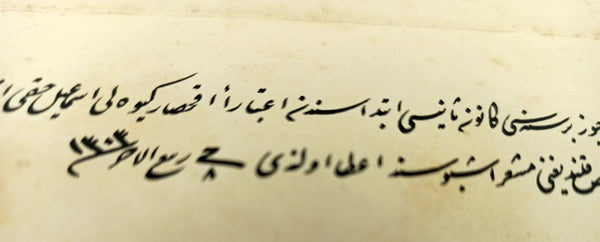 یوز بر سنه‌سی کانون ثانیسی ابتداسندن اعتباراً اقحصار کیوه لی اسماعیل حقی
قلندیغنی مشعر اشبو سند اعطا اولندی فی ٨ ربیع الاخر ١٣٠٣